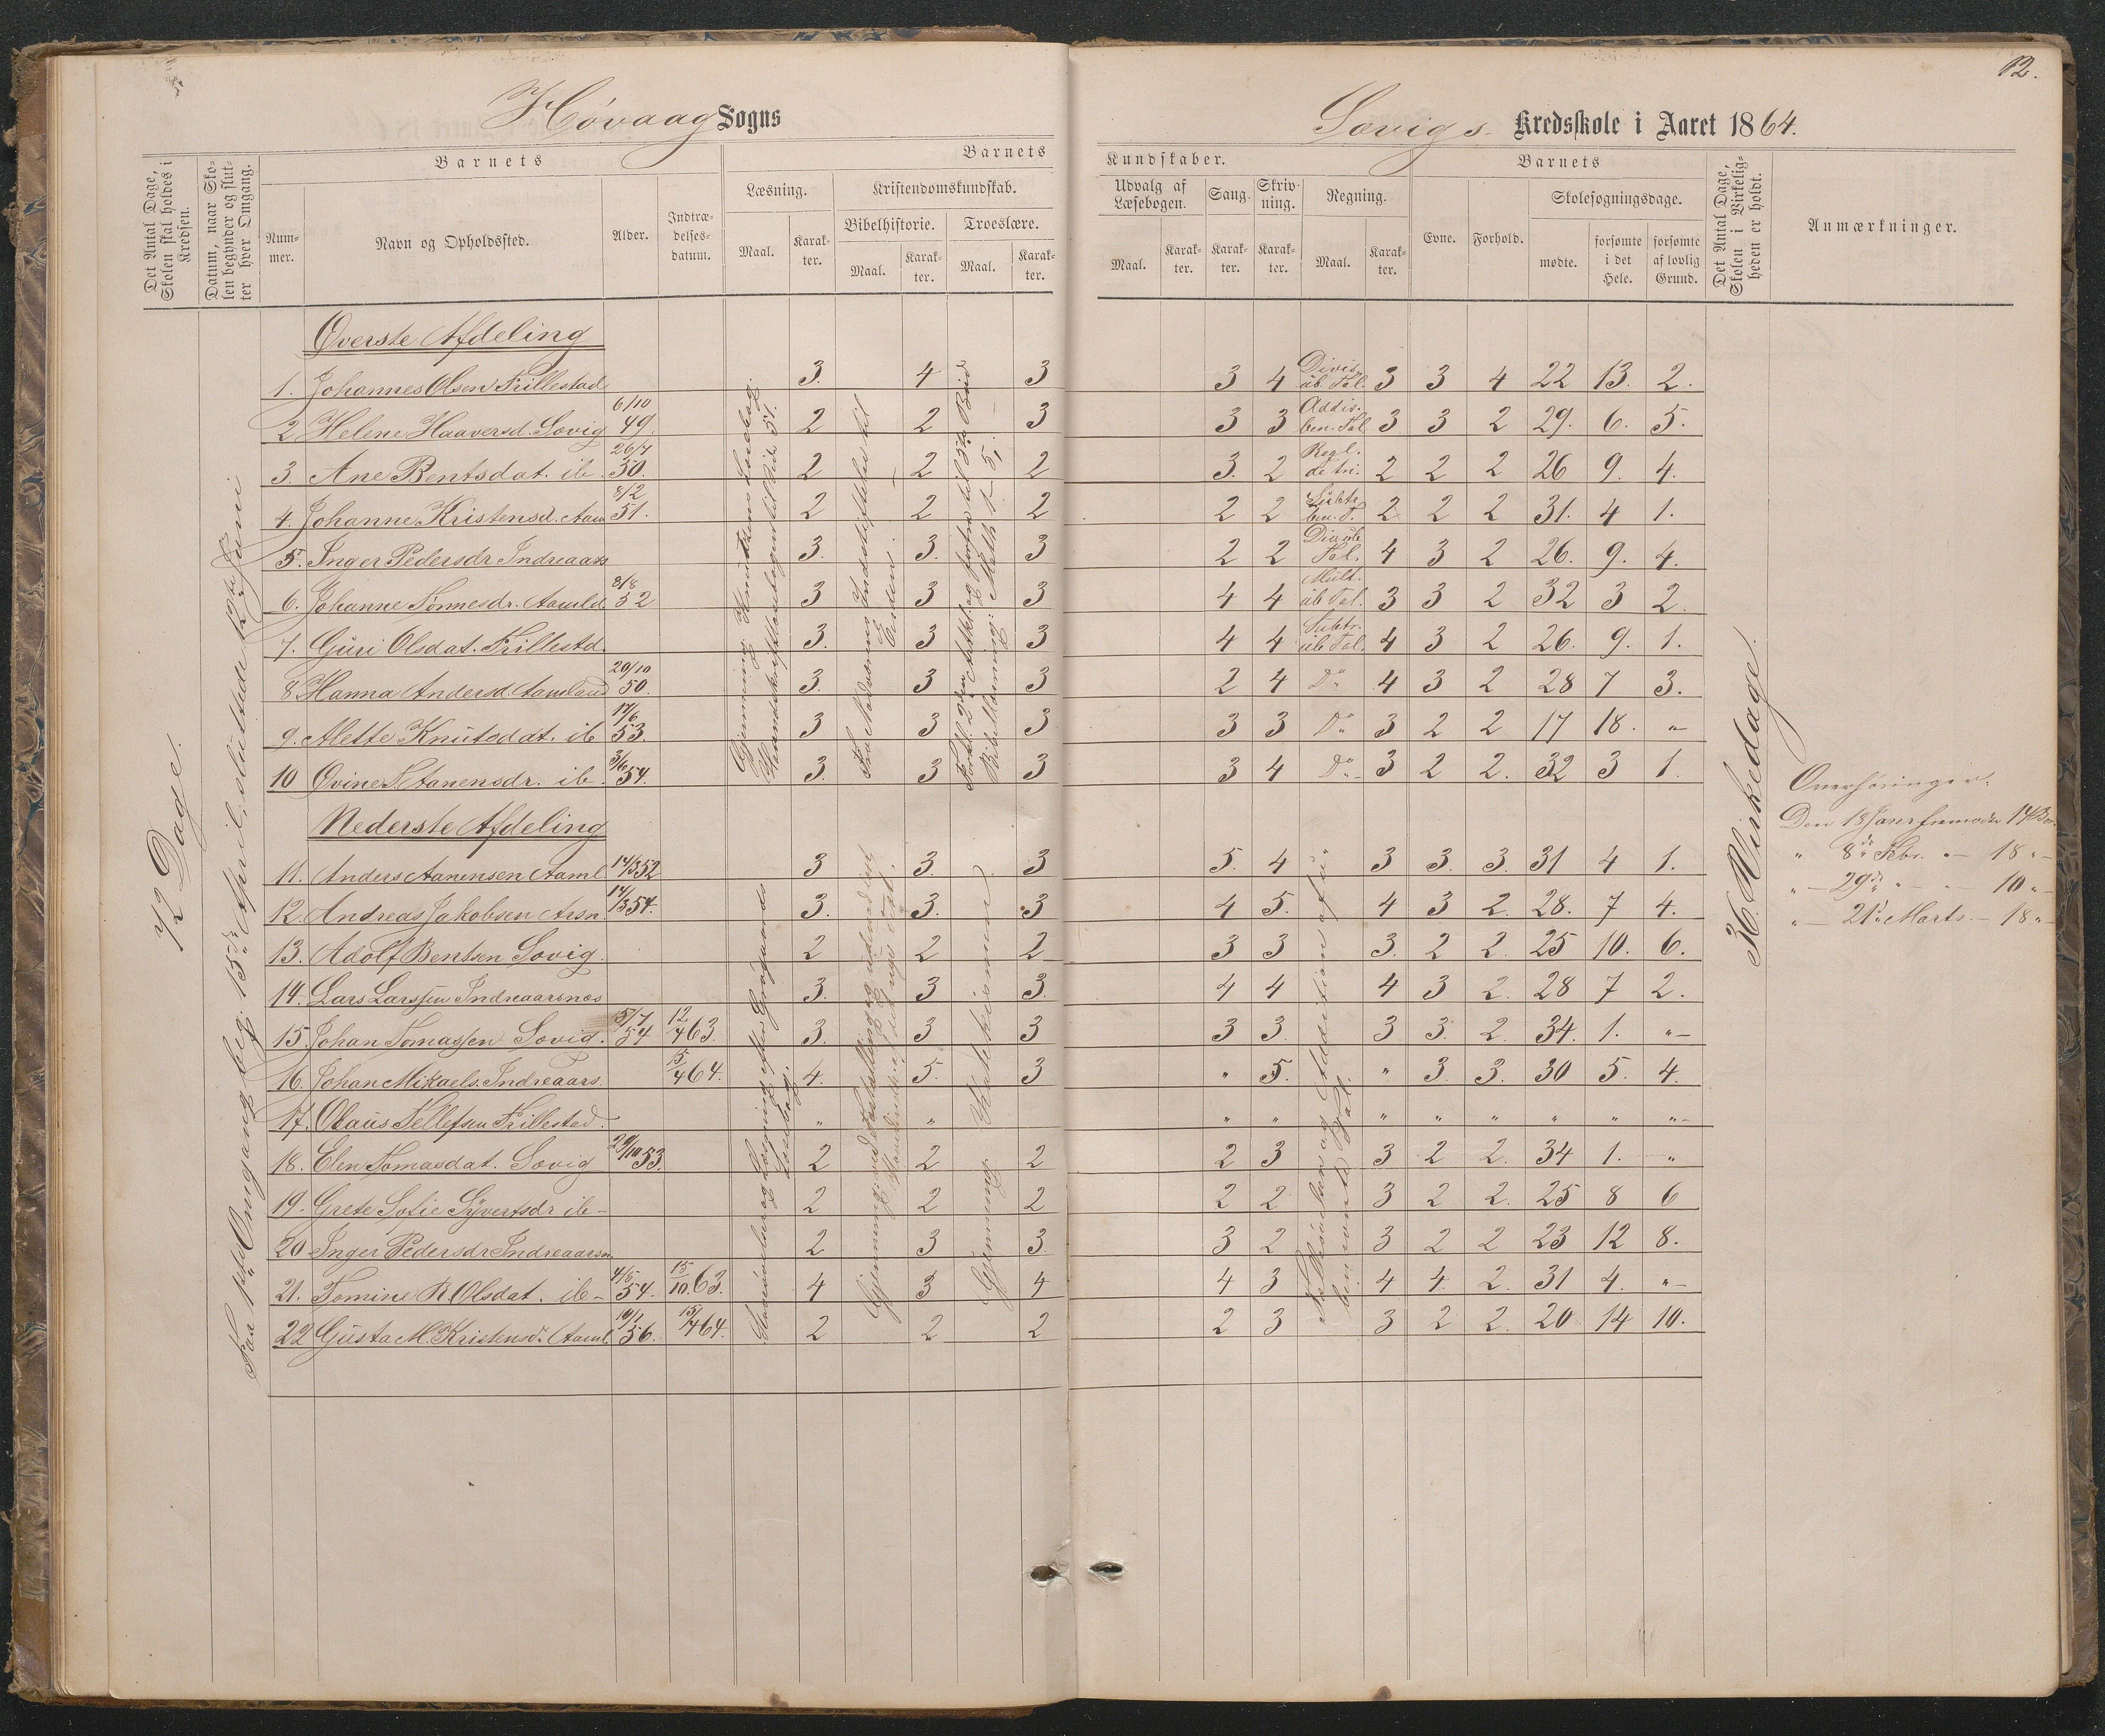 12.
Høvaag Sogns
Sævigs Kredsskole i Aaret 1864.
Det Antal Dage, Skolen skal holdes i Kredsen.
Datum, naar Skolen begynder og slutter hver Omgang.
Barnets
Nummer.
Navn og Opholdssted.
Alder.
Indtrædelsesdatum.
Barnets
Læsning.
Maal.
Karakter.
Kristendomskundskab.
Bibelhistorie.
Maal.
Karakter.
Troeslære.
Maal.
Karakter.
Kundskaber.
Udvalg af Læsebogen.
Maal.
Karakter.
Sang.
Karakter.
Skrivning.
Karakter.
Regning.
Maal.
Karakter.
Barnets
Evne.
Forhold.
Skolesøgningsdage.
mødte.
forsømte i det Hele.
forsømte af lovlig Grund.
Det Antal Dage, Skolen i Virkeligheden er holdt.
Anmærkninger.
72 Dage.
Omgang beg. 13de April, sluttede 12te Juni
Øverste Afdeling
1. Johannes Olsen Trillestad 3. 4 3 3 4 Divis. üb. Tal. 3 3 4 22 13. 2.
2 Helene Haaversd. Sævig 6/10 49. 2 2 3 3 3 Addis. ben. Tal 3 3 2 29. 6. 5.
3. Ane Bentsdat. ib. 26/7 50. 2 2 2 3. 2 Regl. detri. 2 2 2 26 9. 4.
4. Johanne Kristensd. Aam 8/2 51. 2 2 2 2 2 Subtr. ben. T. 2 2 2 31. 4 1.
5. Inger Pedersdr Indreaars 3. 3. 3 2 2 Tal. 4 3 2 26. 9. 4.
6. Johanne Tønnesdr. Aamld 8/8 52 3 3 3 4 4 Mult. üb Tal. 3 3 2 32 3 2.
7. Guri Olsdat. Trillestd. 3. 3 3 4 4 Subtr. üb Tal. 4 3 2 26. 9. 1.
8 Hanna Andersd. Aamland 20/10 50. 3. 3 3 2 4 Do 4 3 2 28 7 3.
9. Alette Knutsdat. ib 17/6 53. 3 3 3 3 3 Do 3 2 2 17 18. "
10 Ovine S. Aanensdr. ib. 3/6 54. 3. 3 3 3 4 Do 3 2 2. 32 3 1.
Nederste Afdeling
11. Anders Aanensen Aaml. 14/3 52 3 3. 3 5. 4 3 3. 3. 31 4 1.
12. Andreas Jakobsen Arsn. 14/3 54. 3. 3. 3 4 5. 4 3 2. 28. 7 4.
13. Adolf Bentsen Sævig. 2 2 2 3 3 3. 2 2. 25 10. 6.
14. Lars Larssen Indreaarsnes 3. 3 3. 4 4 4 3 2. 28 7 2.
15. Johan Tomassen Sævig. 5/7 54 12/4 63. 3. 3 3 3 3. 3 3. 2. 34. 1. "
16. Johan Mikaels. Indreaars. 15/4 64. 4. 5. 3 " 5. " 3. 3. 30 5. 4.
17. Olaus Tellefsen Trillestad. " " " " " " " " " "
18. Elen Tomasdat. Sævig 29/10 53. 2 2 2 2 3 3 2 2. 34 1. "
19. Grete Sofie Syvertsdr ib- 2 2 2 2 2 3 2 2. 25 8 6
20 Inger Pedersdr Indreaarsn. 2 3 3 3 2 3 2 2 23 12 8.
21. Tomine R. Olsdat. ib- 4/5 54. 15/10. 63. 4 3 4 4 3 4 4. 2. 31 4. "
22 Gusta M. Kristensdr. Aaml. 10/1 56. 15/4 64. 2 2 2 2 3 3 2 2. 20 14 10.
36 Virkedage.
Overhøringer.
Den 18 Janr fremødte 14 Børn
" 8de Febr. " 18 "
" 29de " " 10 "
" 21de Marts. " 18 "